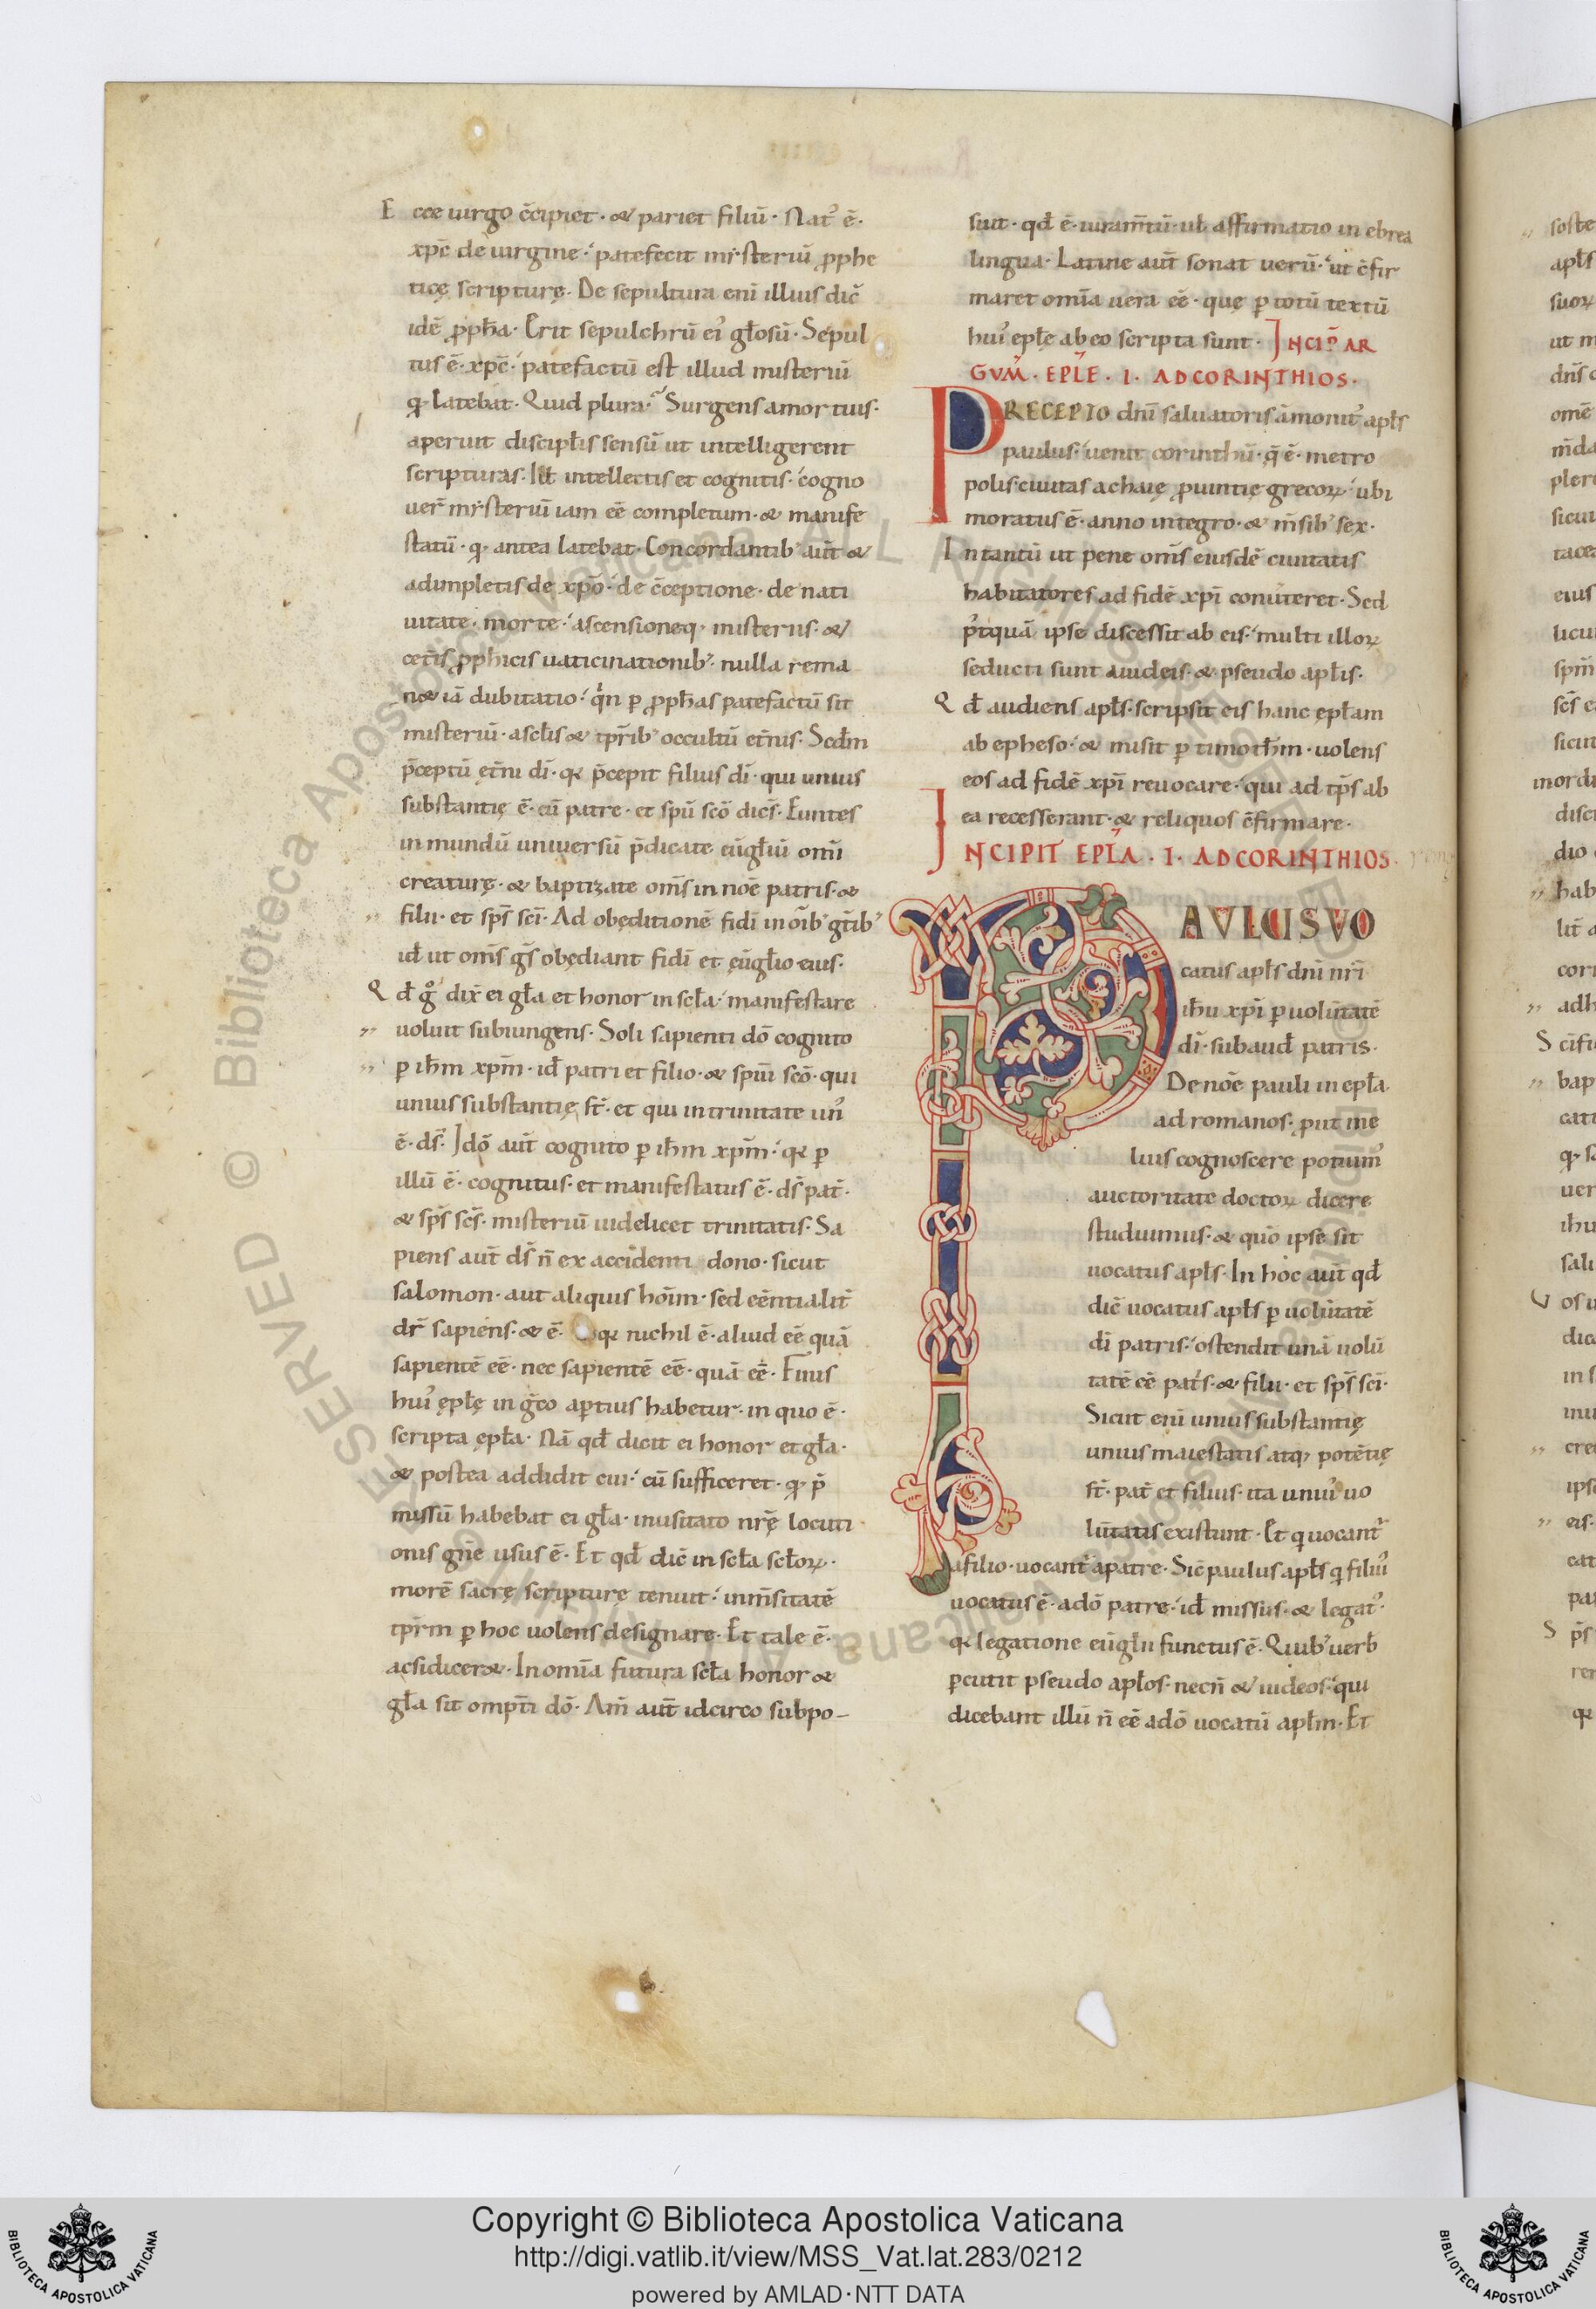 Ecce uirgo c̄cipiet · & pariet filiū · Nat᾽ ē ·
xp̄c de uirgine · patefecit mysteriū ꝓphe
ticę scripturę · De sepultura eni illius dic̄
idē ꝓph̄a · Erit sepulchrū ei᾽ gl̄osū · Sepul
tus ē · xp̄c · patefactū est illud misteriū
qđ latebat · Quid plura · Surgens a mortuis ·
aperuit discipl̄is sensū ut intelligerent
scripturas · intellectis et cognitis · cogno
uer̄ mysteriū iam eē completum · & manife
statū · qđ antea latebat · Concordantib᾽ aut̄ &
adimpletis de xp̄o · de c̄ceptione · de nati
uitate · morte · ascensioneq; misteriis · &
cet̄is ꝓphicis uaticinationib᾽ · nulla rema
n& iā dubitatio · qn̄ ꝑ ꝓph̄as patefactū sit
misteriū · a scl̄is & tp̄rib᾽ occultū et̄nis · Scd̄m
p̄ceptū et̄ni dī · qđ p̄cepit filius dī · qui unius
substantię ē · cū patre · et spū scō dicēs · Euntes
in mundū uniuersū p̄dicate eūgl̄iū omī
creaturę · & baptizate om̄s in noē patris · &
filii · et sp̄s scī · Ad obęditionē fidī in oīb᾽ gt̄ib᾽
id ut om̄s gs̄ obędiant fidī et eūgl̄io eius ·
Qđ g° dix̄ ei gl̄a et honor in scl̄a · manifestare
uoluit subiungens · Soli sapienti dō cognito
ꝑ ih̄m xp̄m · id patri et filio · & spiūi scō · qui
unius substantię st̄ · et qui in trinitate un᾽
ē · ds̄ · Idō aut̄ cognito ꝑ ih̄m xp̄m · qđ ꝑ
illū ē · cognitus · et manifestatus ē · ds̄ pat̄ ·
& sp̄s scs̄ · misteriū uidelicet trinitatis · Sa
piens aut̄ ds̄ n̄ ex accidenti dono · sicut
salomon · aut aliquis hoīm · sed eēntialit̄
dr̄ sapiens · & ē · qđ nichil ē · aliud eē quā
sapientē eē · nec sapientē eē · quā eē · Finis
hui᾽ epl̄ę in gc̄o apertius habetur · in quo ē ·
scripta epl̄a · Nā qđ dicit ei honor et gl̄a ·
& postea addidit cui · cū sufficeret · qđ p̄
missū habebat ei gl̄a · inusitato nrę̄ locuti
onis gn̄e usus ē · Et qđ dic̄ in scl̄a scl̄oꝝ ·
morē sacrę scripturę tenuit · inm̄sitatē
tp̄rm ꝑ hoc uolens designare · Et tale ē ·
ac si dicer& · In om̄a futura scl̄a honor &
gl̄a sit omp̄ti dō · Am̄ aut̄ idcirco subpo-
suit · qđ ē · iuram̄tū · ut affirmatio in ebrea
lingua · Latine aut̄ sonat uerū · ut c̄fir
maret om̄a uera eē · quę ꝑ totū textū
hui᾽ epl̄ę ab eo scripta sunt · INCIP̄ AR
GVM̄ · EPLE · I · AD CORINTHIOS ·
PRECEPTO dn̄i saluatoris āmonit᾽ apl̄s
paulus · uenit corinthū · q̄ ē · metro
polis ciuitas achaię ꝓuintię grecoꝝ · ubi
moratus ē · anno integro · & m̄sib᾽ sex ·
In tantū ut pene om̄s eiusdē ciuitatis
habitatores ad fidē xp̄i conuteret · Sed
p᾽tquā ipse discessit ab eis · multi illoꝝ
seducti sunt a iudeis · & pseudo apl̄is ·
Qđ audiens apl̄s · scripsit eis hanc epl̄am
ab epheso · & misit ꝑ timoth̄m · uolens
eos ad fidē xp̄i reuocare · qui ad tp̄s ab
ea recesserant · & reliquos c̄firmare ·
INCIPIT EPL̄A · I · AD CORINTHIOS
PAVLUS VO
catus apl̄s dn̄i nr̄i
ih̄u xp̄i ꝑ uolūtatē
dī · subaud̄ patris ·
De noē pauli in epl̄a
ad romanos · ꝓut me
lius cognoscere potuim᾽
auctoritate doctoꝝ dicere
studuimus · & quō ipse sit
uocatus apl̄s · In hoc aut̄ qđ
dic̄ uocatus apl̄s ꝑ uolūtatē
dī patris · ostendit unā uolū
tatē eē pat̄s · & filii · et sp̄s scī ·
Sicut enī unius substantię
unius maiestatis atq; potētię
st̄ · pat̄ et filius · ita uni᾽ uo
lūtatis existunt · Et q uocant᾽
a filio · uocant᾽ a patre · Sic̄ paulus apl̄s q filiū
uocatus ē · a dō patre · id missus · & legat᾽ ·
qđ legatione eūgl̄ii functus ē · Quib᾽ uerb̄
ꝑcutit pseudo apl̄os · necn̄ & iudeos · qui
dicebant illū n̄ eē a dō uocatū apl̄m · Et
Copyright © Biblioteca Apostolica Vaticana
http://digi.vatlib.it/view/MSS_Vat.lat.283/0212
powered by AMLAD·NTT DATA
BIBLIOTECA APOSTOLICA VATICANA
BIBLIOTECA APOSTOLICA VATICANA